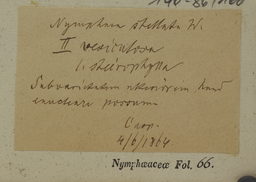 Nymphaea stellata W.
II vesiculosa
1. steirophylla
Subvarietatem ulteriorem haud
enucleare possum
Casp.
4/6/1864
Nymphaeaceæ Fol. 66.